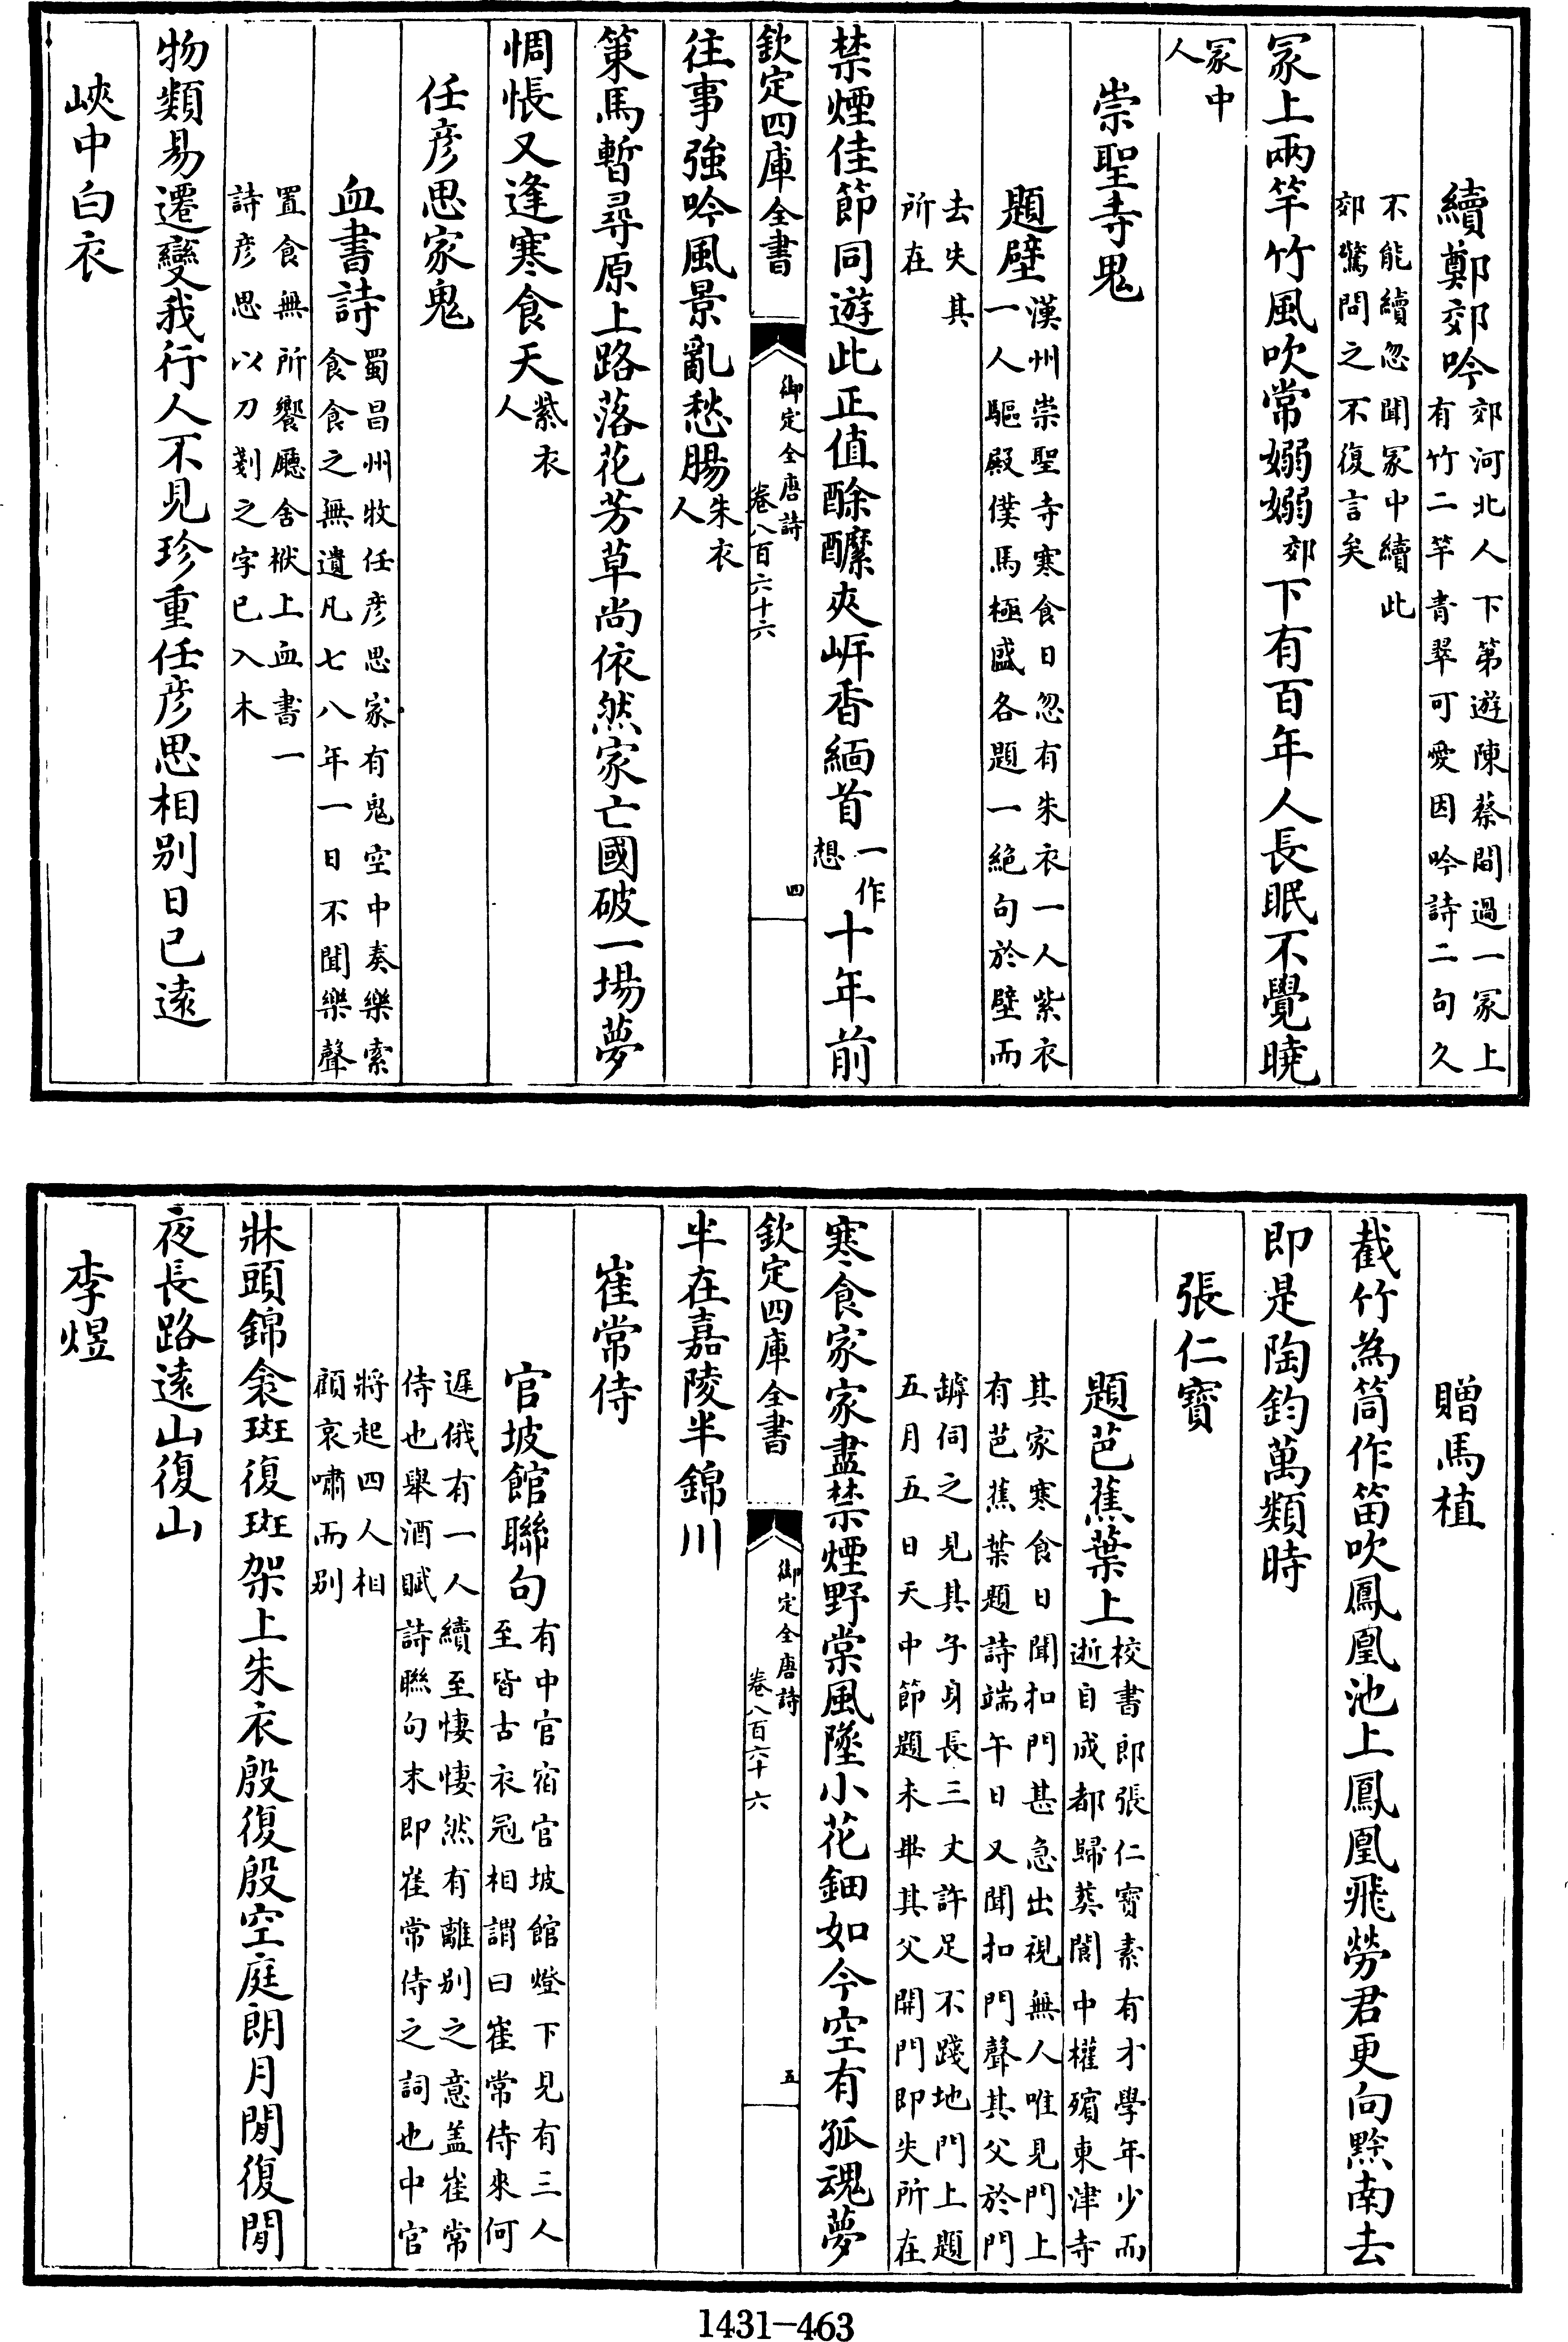 續鄭郊吟郊河北人下第遊陳蔡間過一冢上
有竹二竿青翠可愛因吟詩二句久
不能續忽聞冢中續此
郊驚問之不復言矣
冢上兩竿竹風吹常嫋嫋郊下有百年人長眠不覺曉
冢中
人
崇聖寺鬼
題壁漢州崇聖寺寒食日忽有朱衣一人紫衣
一人驅殿僕馬極盛各題一絶句於壁而
去失其
所在
禁煙佳節同遊此正值酴醿夾岍香緬首一作
想十年前
欽定四庫全書
御定全唐詩
卷八百六十六
四
往事強吟風景亂愁腸朱衣
人
策馬暫尋原上路落花芳草尚依然家亡國破一場夢
惆悵又逢寒食天紫衣
人
任彦思家鬼
血書詩蜀昌州牧任彦思家有鬼空中奏樂索
食食之無遺凡七八年一日不聞樂聲
置食無所饗廳舍栿上血書一
詩彦思以刀剗之字已入木
物類易遷變我行人不見珍重任彦思相别日已遠
峽中白衣
贈馬植
截竹為筒作笛吹鳳凰池上鳳凰飛勞君更向黔南去
即是陶鈞萬類時
張仁寶
題芭蕉葉上校書郎張仁寶素有才學年少而
逝自成都歸葬閬中權殯東津寺
其家寒食日聞扣門甚急出視無人唯見門上
有芭蕉葉題詩端午日又聞扣門聲其父於門
罅伺之見其子身長三丈許足不踐地門上題
五月五日天中節題未畢其父開門即失所在
寒食家家盡禁煙野棠風墜小花鈿如今空有孤魂夢
欽定四庫全書
御定全唐詩
卷八百六十六
五
半在嘉陵半錦川
崔常侍
官坡館聯句有中官宿官坡館燈下見有三人
至皆古衣冠相謂曰崔常侍來何
遲俄有一人續至悽悽然有離别之意盖崔常
侍也舉酒賦詩聯句末即崔常侍之詞也中官
將起四人相
顧哀嘯而别
牀頭錦衾斑復斑架上朱衣殷復殷空庭朗月閒復閒
夜長路遠山復山
李煜
1431-463